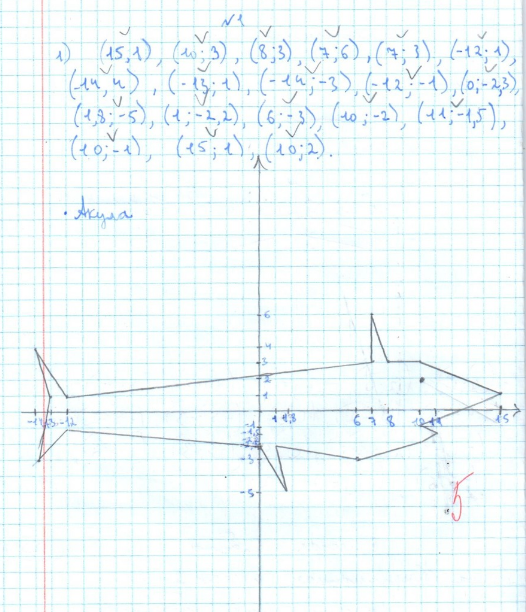 №1
1) (15;1), (10;3), (8;3), (7;6), (7;3), (-12;1),
(-14;4), (-13;1), (-14;-3), (-12;-1), (0;-2,3)
(1,8;-5), (1;-2,2), (6;-3), (10;-2), (11;-1,5),
(10;-1), (15;1), (10;2).
• Акула
6
4
3
2
1
-14 -13 -12 1 1,8 6 7 8 10 11 15
-1
-3
-5
5